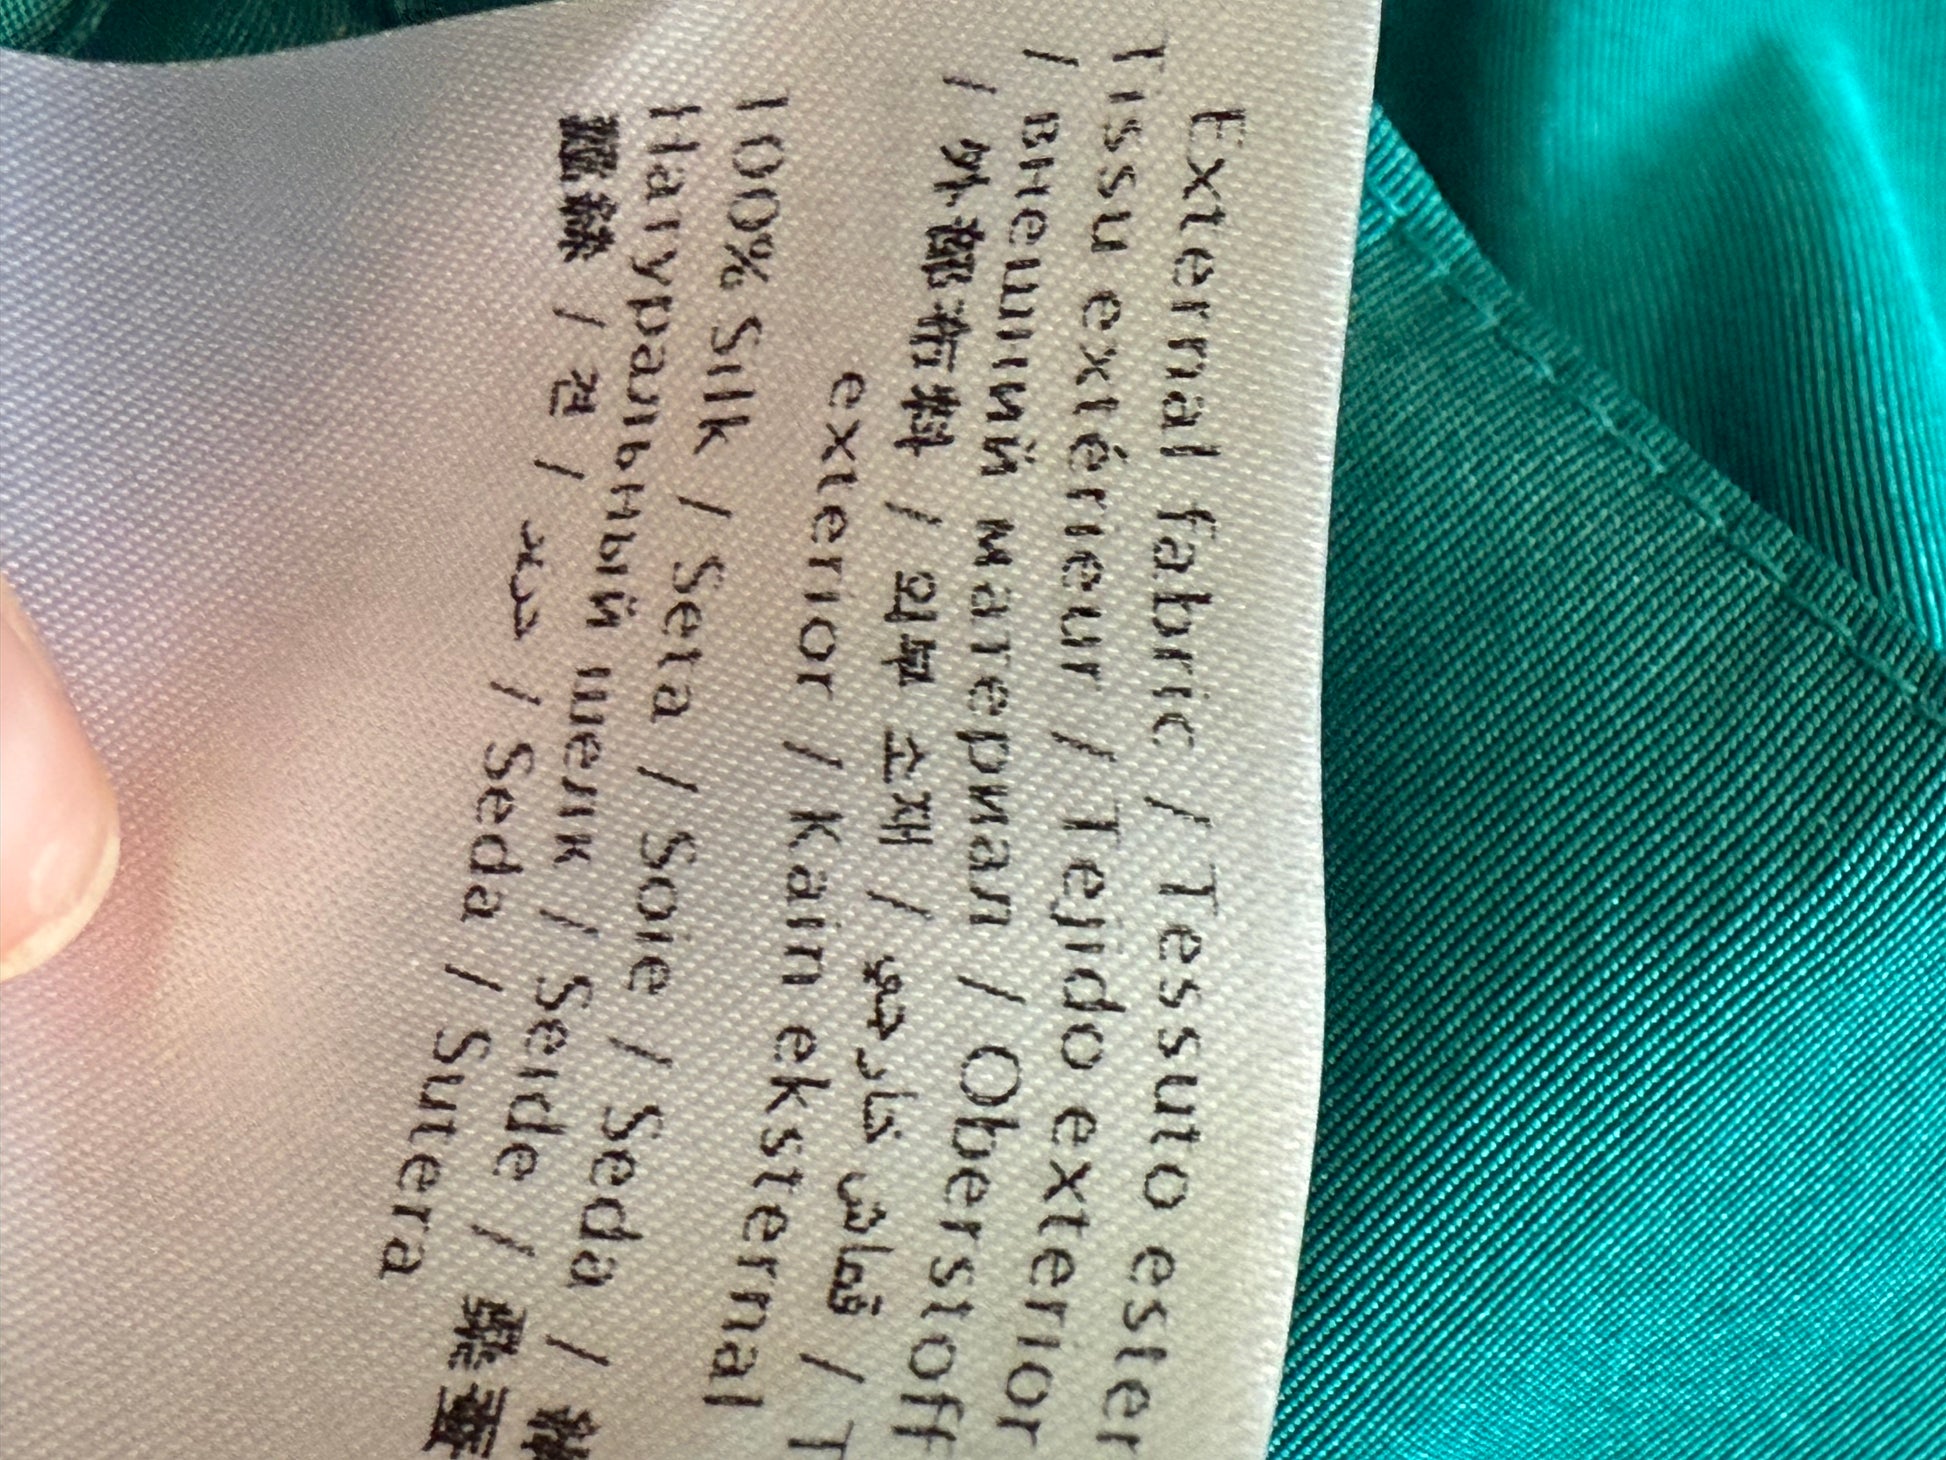 External fabric / Tessuto ester
Tissu extérieur / Tejido exterior
/ внешний материал / Oberstoff
/ 外部布料 / 외부 소재 / قماش خارجي / T
exterior / Kain eksternal
100% Silk / Seta / Soie / Seda /
Натуральный шелк / Seide /
/ 견 / حرير / Seda / Sutera